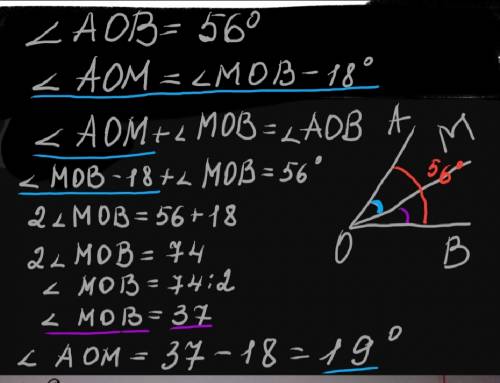 ∠AOB = 56°
∠AOM = ∠MOB - 18°
∠AOM + ∠MOB = ∠AOB
∠MOB - 18 + ∠MOB = 56°
2∠MOB = 56 + 18
2∠MOB = 74
∠MOB = 74:2
∠MOB = 37
∠AOM = 37 - 18 = 19°
A
M
56°
O
B